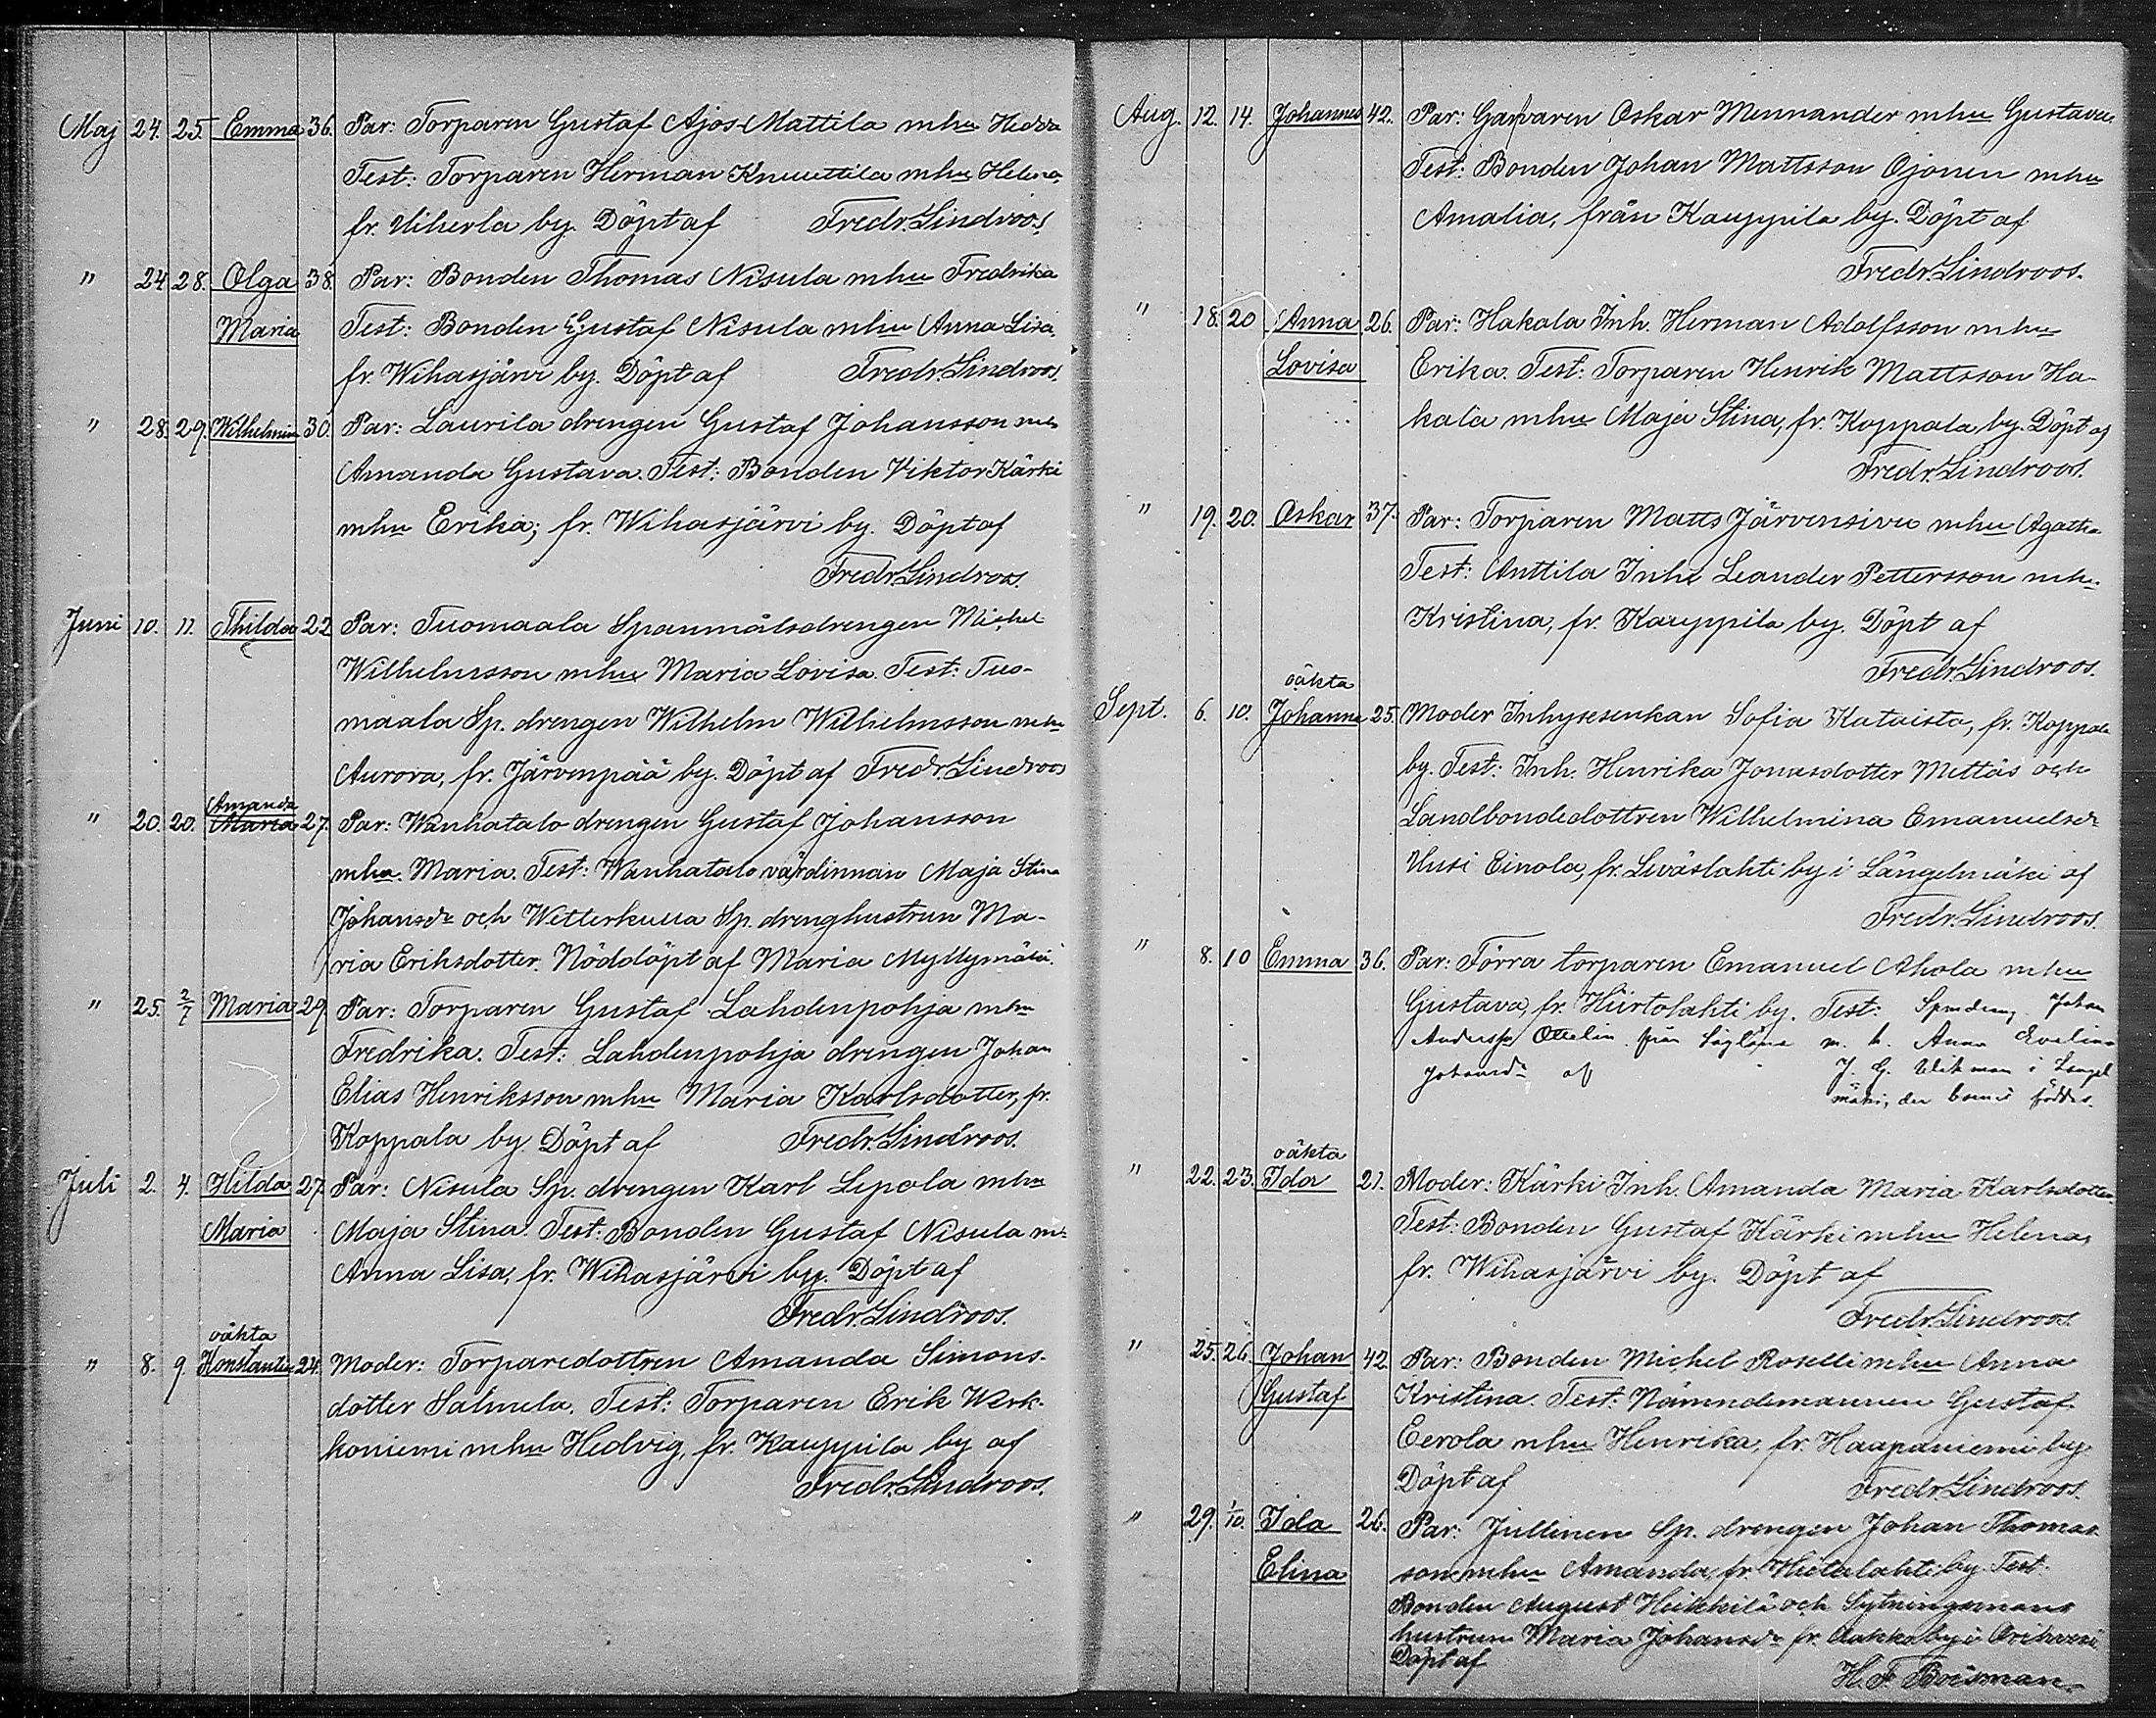 Maj 24. 25. Emma 36. Par: Torparen Gustaf Ajos-Mattila mhu Hedda
Test: Torparen Herman Knuuttila mhu Helena,
fr. Uiherla by. Döpt af Fredr. Lindroos.
" 24 28. Olga 38. Par: Bonden Thomas Nisula mhu Fredrika
Maria Test: Bonden Gustaf Nisula mhu Anna Lisa,
fr. Wihasjärvi by. Döpt af Fredr. Lindroos.
" 28. 29. Wilhelmina 30 Par: Laurila drengen Gustaf Johansson mhu
Amanda Gustava. Test: Bonden Viktor Kärki
mhu Erika, fr. Wihasjärvi by. Döpt af
Fredr. Lindroos.
Juni 10. 11. Thilda 22 Par: Tuomaala Spanmålsdrengen Michel
Wilhelmsson mhu Maria Lovisa. Test: Tuo-
maala Sp. drengen Wilhelm Wilhelmsson mhu
Aurora, fr. Järvenpää by. Döpt af Fredr. Lindroos
Amanda
" 20. 20. Maria 27. Par: Wanhatalo drengen Gustaf Johansson
mhu. Maria. Test: Wanhatalo värdinnan Maja Stina
Johansdr och Wetterkulla Sp. drenghustrun Ma-
ria Eriksdotter. Nöddöpt af Maria Myllymäki.
" 25. 2/7 Maria 29. Par: Torparen Gustaf Lahdenpohja mhu
Fredrika. Test: Lahdenpohja drengen Johan
Elias Henriksson mhu Maria Karlsdotter, fr.
Koppala by. Döpt af Fredr. Lindroos.
Juli 2. 4. Hilda 27. Par: Nisula Sp. drengen Karl Lepola mhu
Maria Maja Stina. Test: Bonden Gustaf Nisula mh
Anna Lisa, fr. Wihasjärvi by. Döpt af
Fredr. Lindroos.
oäkta
" 8. 9. Konstantin 24. Moder: Torparedottren Amanda Simons-
dotter Salmela. Test: Torparen Erik Werk-
koniemi mhu Hedvig, fr. Kauppila by af
Fredr. Lindroos.
Aug. 12. 14. Johannes 42. Par: Garfvaren Oskar Mennander mhu Gustava.
Test: Bonden Johan Mattsson Ojonen mhu
Amalia, från Kauppila by. Döpt af
Fredr. Lindroos.
" 18. 20 Anna 26. Par: Hakala Inh. Herman Adolfsson mhu
Lovisa Erika. Test: Torparen Henrik Mattsson Ha-
kala mhu Maja Stina, fr. Koppala by. Döpt af
Fredr. Lindroos.
" 19. 20. Oskar 37. Par: Torparen Matts Järvensivu mhu Agatha
Test: Anttila Inh: Leander Pettersson mhu
Kristina, fr. Kauppila by. Döpt af
Fredr. Lindroos.
oäkta
Sept. 6. 10. Johanna 25. Moder Inhysesenkan Sofia Kataista, fr. Koppala
by. Test: Inh. Henrika Jonasdotter Mettäs och
Landbondedottren Wilhelmina Emanuelsdr
Uusi Einola, fr. Leväslahti by i Längelmäki af
Fredr. Lindroos.
" 8. 10 Emma 36. Par: Förra torparen Emanuel Ahola mhu
Gustava, fr. Hiirtolahti by. Test: Johan
Anderss. Ottelin från m. h. Anna Evelina
Johansdr af J. G. Wikman i Längel
mäki, der barnet föddes.
oäkta
" 22. 23. Ida 21. Moder: Kärki Inh. Amanda Maria Karlsdotter.
Test: Bonden Gustaf Kärki mhu Helena,
fr. Wihasjärvi by. Döpt af
Fredr. Lindroos.
" 25. 26. Johan 42. Par: Bonden Michel Roselli mhu Anna
Gustaf Kristina. Test: Nämndemannen Gustaf
Eerola mhu Henrika, fr. Haapaniemi by
Döpt af Fredr. Lindroos.
" 29. 1/10. Ida 26. Par: Jullinen Sp. drengen Johan Thomas-
Elina son mhu Amanda, fr. Hietalahti by. Test.
Bonden August Heikkilä och Sytningsmans
hustrun Maria Johansdr fr. by i Orihvesi
Döpt af H. F. Boisman.